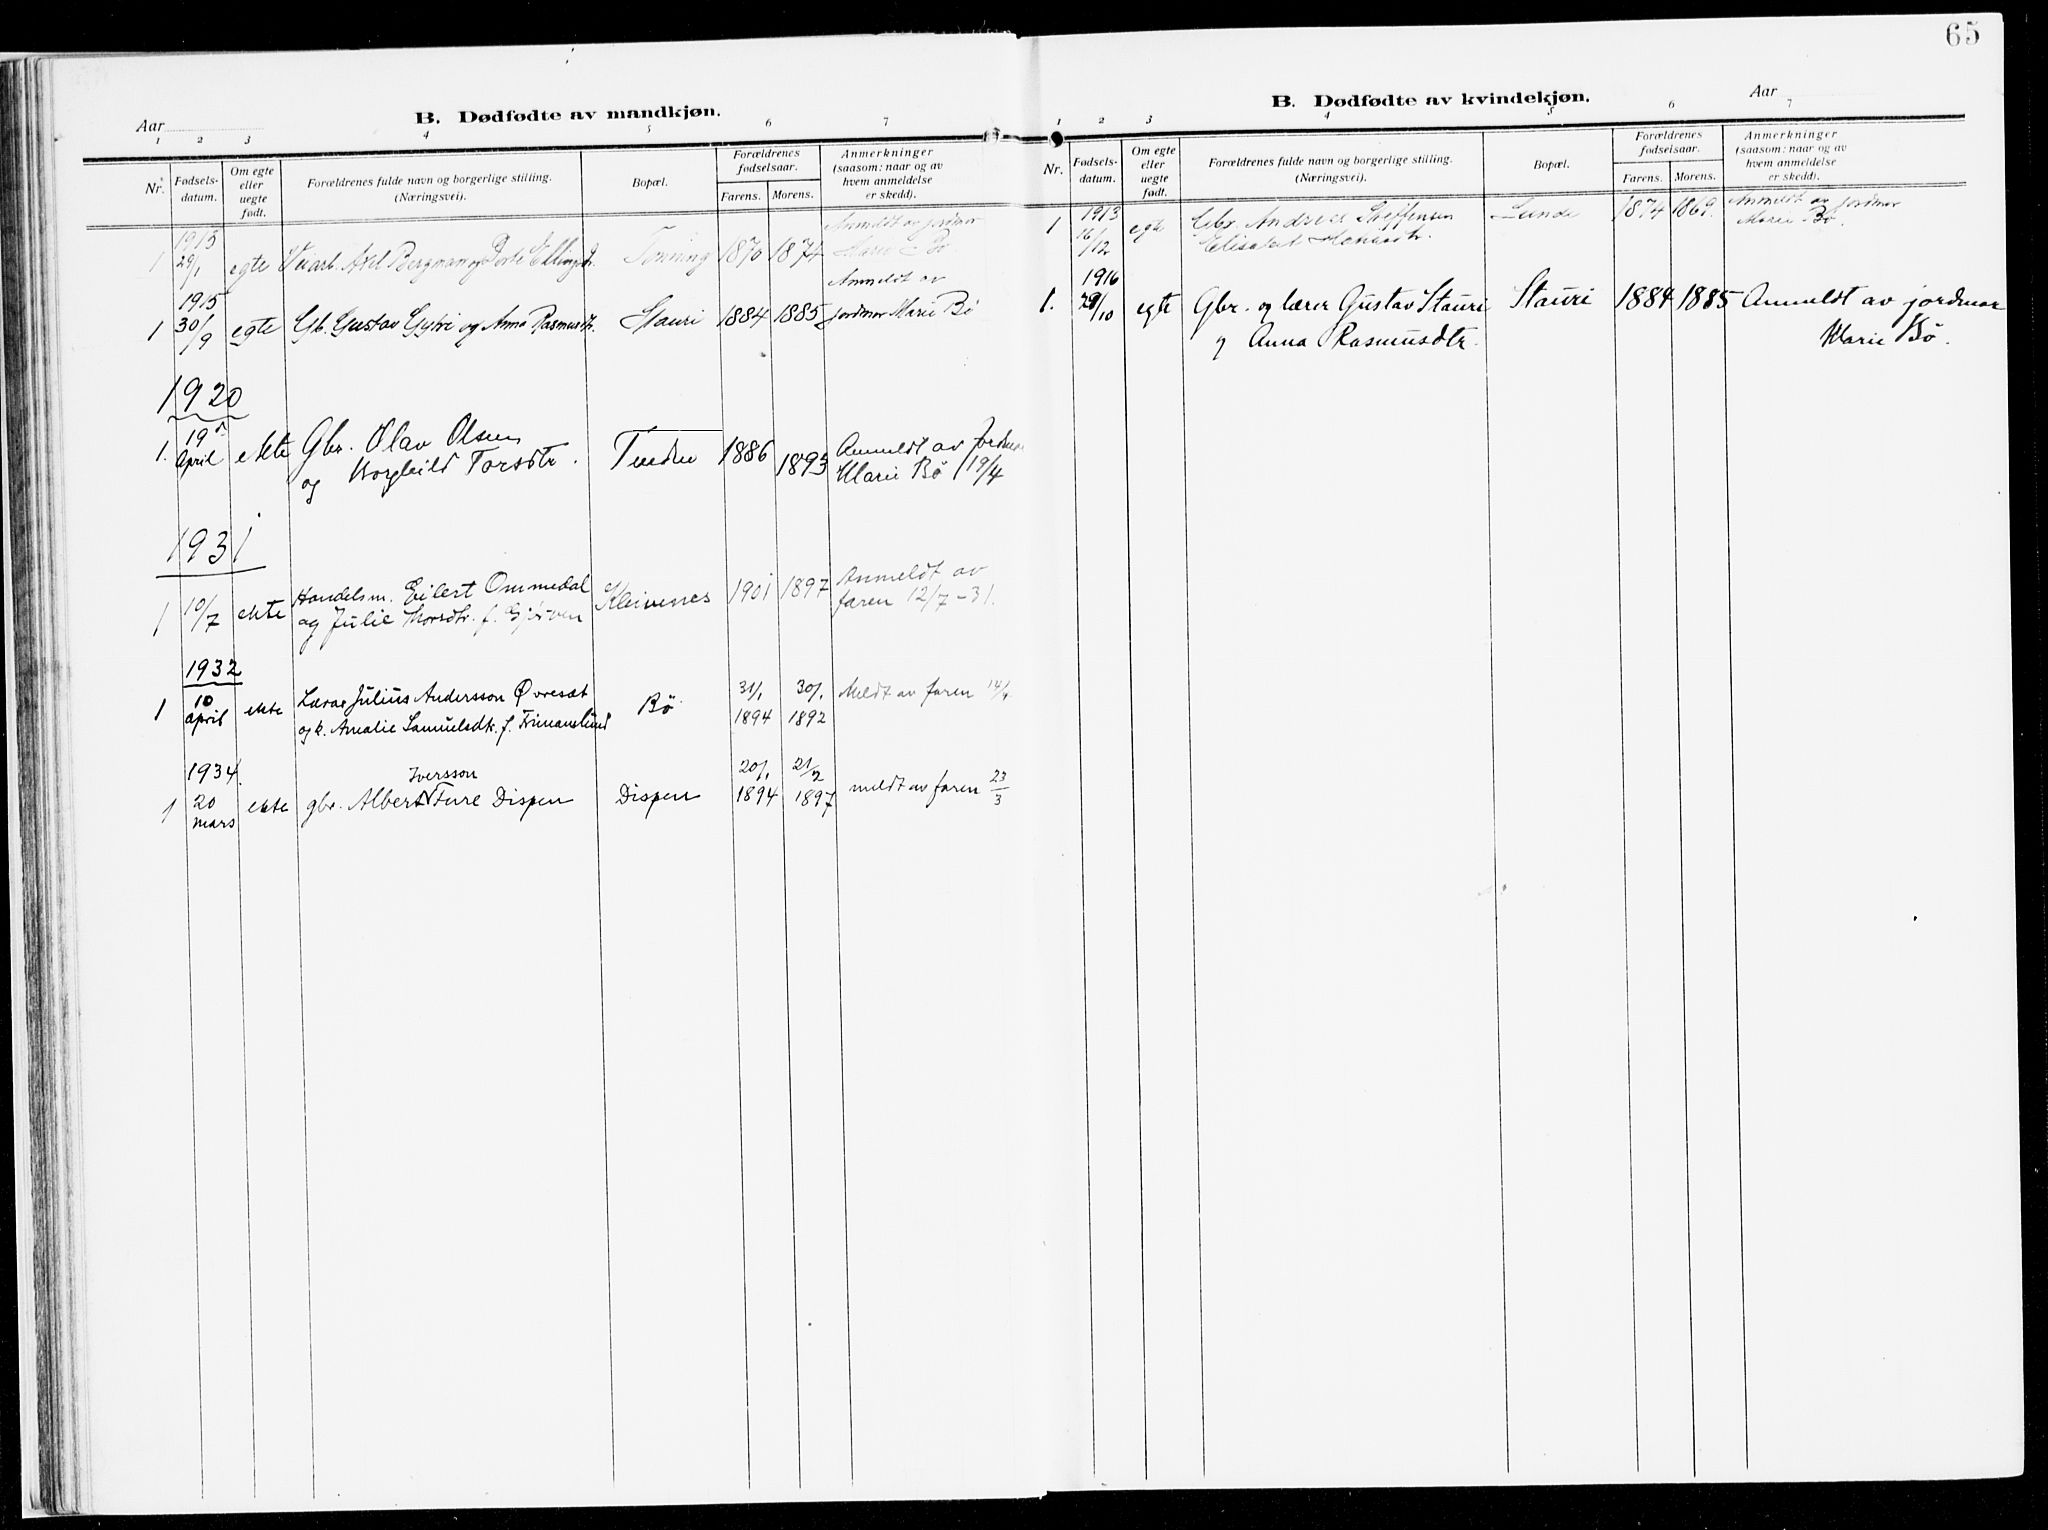 B. Dødfødte av mandkjøn.
Aar
1 2 3 4 5 6 7
Nr. Fødsels-datum. Om egte eller uegte født. Forældrenes fulde navn og borgerlige stilling. (Næringsvei). Bopæl. Forældrenes fødselsaar. Farens. Morens. Anmerkninger (saasom: naar og av hvem anmeldelse er skedd).
1913 Anmeldt av jordmor
1 29/1 egte Axel Bergman og Tønning 1870 1874 Marie Bø
1915 Anmeldt av
1 30/9 egte Gb. Gustav og Anna Rasmusdtr. Stauri 1884 1885 jordmor Marie Bø
1920
1. 19de April ekte Gbr. Olav Olsen 1886 1893 Anmeldt av jordmor
og Borghild Torsdtr. Marie Bø 19/4
1931
1 10/7 ekte Handelsm. Eilert Ommedal Kleivenes 1901 1897 Anmeldt av
og Julie faren 12/7-31.
1932
1 10 april ekte Lærar Julius Andersson Øvresæt Bø 31/1 1894 30/1 1892 Meldt av faren 14/4
og k. Amalie Samuelsdtr. f. Frimanslund
1934
Iversson
1 20 mars ekte gbr. Albert Ture Dispen Dispen 20/1 1894 21/2 1897 meldt av faren 23/3
65
B. Dødfødte av kvindekjøn.
Aar
1 2 3 4 5 6 7
Nr. Fødsels-datum. Om egte eller uegte født. Forældrenes fulde navn og borgerlige stilling. (Næringsvei). Bopæl. Forældrenes fødselsaar. Farens. Morens. Anmerkninger (saasom: naar og av hvem anmeldelse er skedd).
1913
1 16/12 egte Gbr. Andreas Steffensen Lunde 1874 1869. Anmeldt av jordmor
Elisabet Marie Bø.
1916
1. 29/10 egte Gbr. og lærer Gustav Stauri Stauri 1884 1885 Anmeldt av jordmor
og Anna Rasmusdtr. Marie Bø.